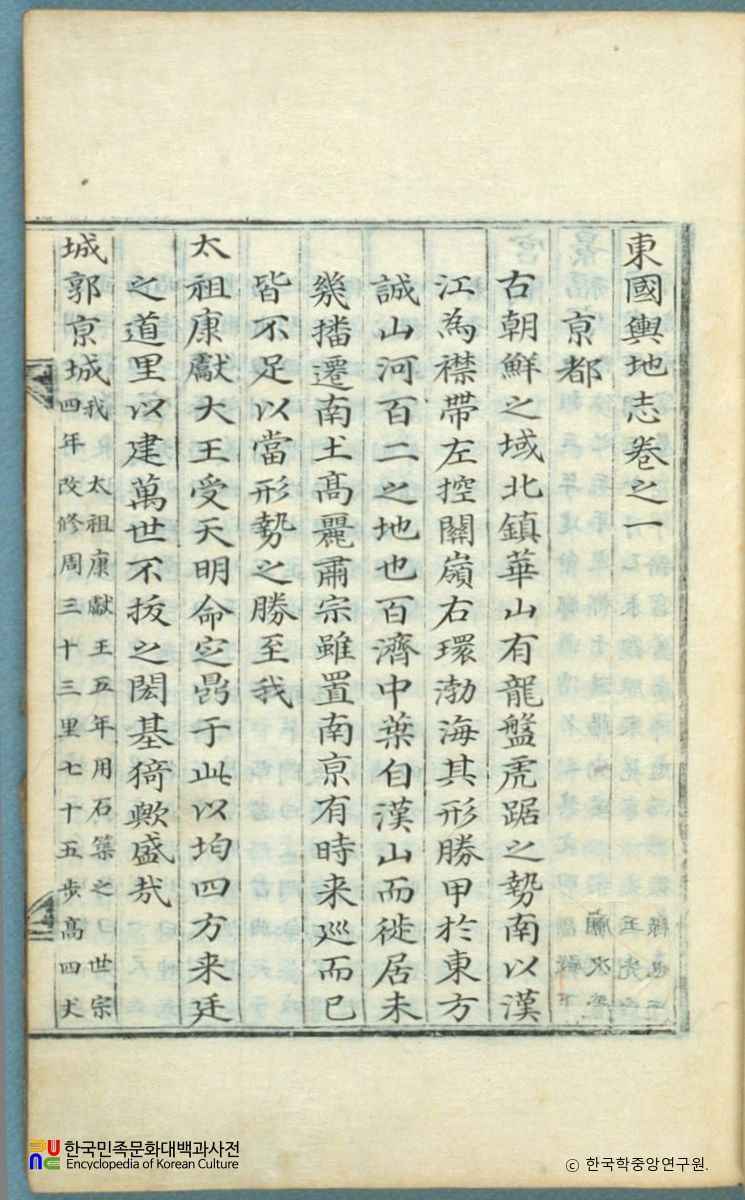 東國輿地志卷之一
亰都
古朝鮮之域北鎮華山有龍盤虎踞之勢南以漢
江為襟帶左控關嶺右環渤海其形勝甲於東方
誠山河百二之地也百濟中葉自漢山而徙居未
幾播遷南土髙麗肅宗雖置南亰有時来廵而已
皆不足以當形勢之勝至我
太祖康獻大王受天明命㝎鼎于此以均四方来廷
之道里以建萬世不拔之閎基猗歟盛哉
城郭亰城我 太祖康獻王五年用石築之 世宗
四年改修周三十三里七十五步髙四丈
한국민족문화대백과사전
Encyclopedia of Korean Culture
© 한국학중앙연구원.